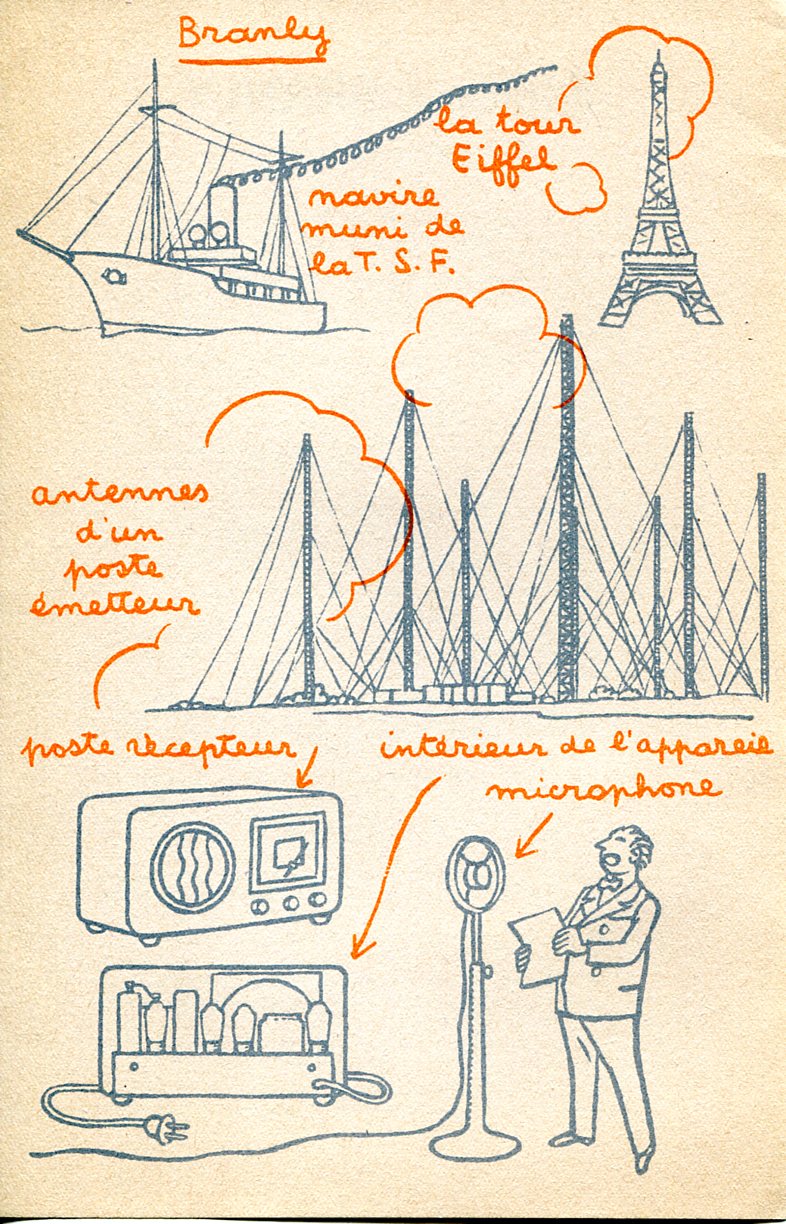 Branly
la tour
Eiffel
navire
muni de
la T. S. F.
antennes
d'un
poste
émetteur
poste récepteur
intérieur de l'appareil
microphone